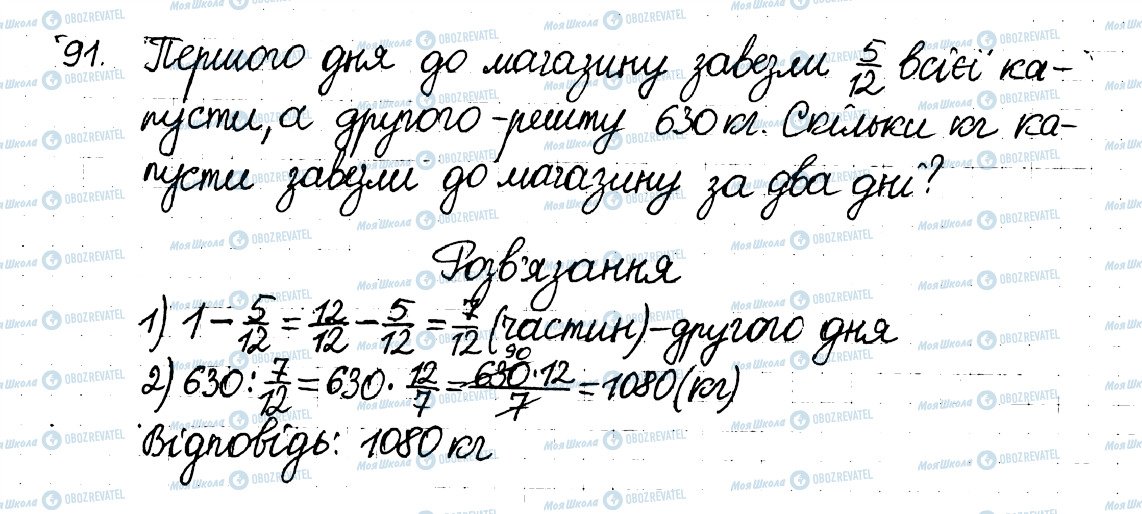 91. Першого дня до магазину завезли 5/12 всієї ка-
пусти, а другого - решту 630 кг. Скільки кг ка-
пусти завезли до магазину за два дні?
Розв'язання
1) 1 - 5/12 = 12/12 - 5/12 = 7/12 (частин) - другого дня
2) 630 : 7/12 = 630 · 12/7 = 630·12/7 = 1080 (кг)
90
Відповідь: 1080 кг
МояШкола OBOZREVATEL